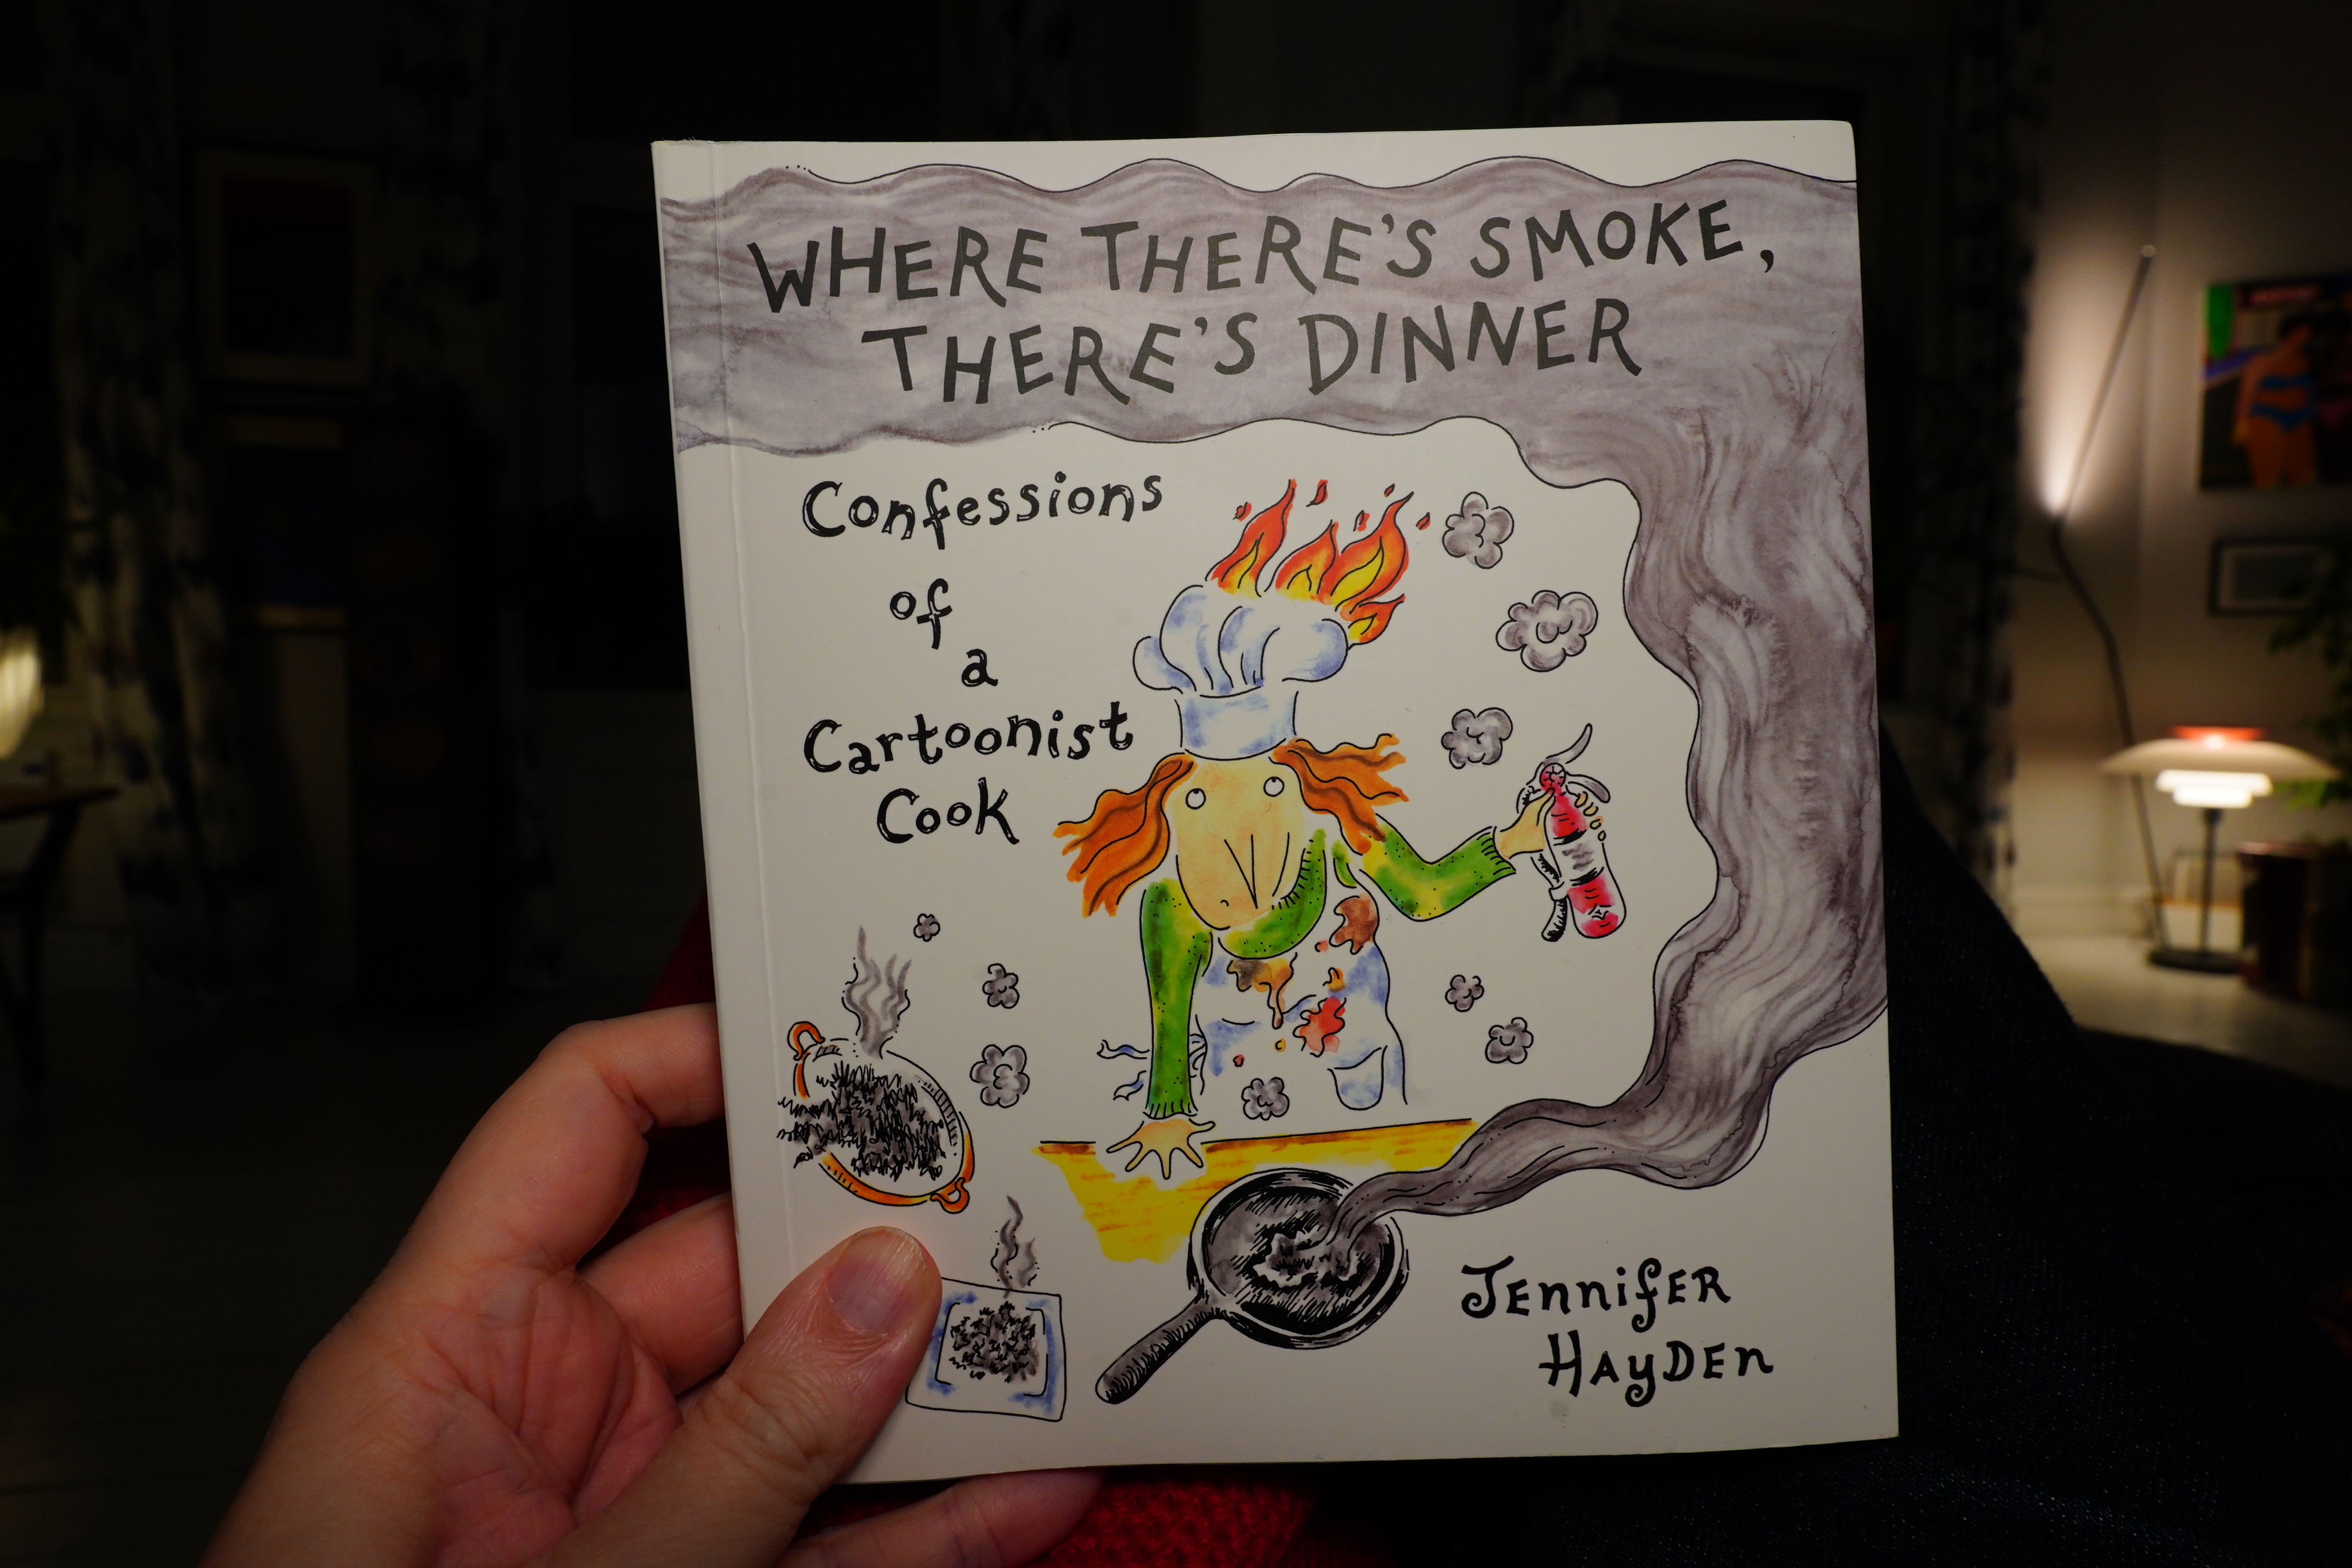 WHERE THERE'S SMOKE,
THERE'S DINNER
Confessions
of
a
Cartoonist
Cook
JENNIFER
HAYDEN